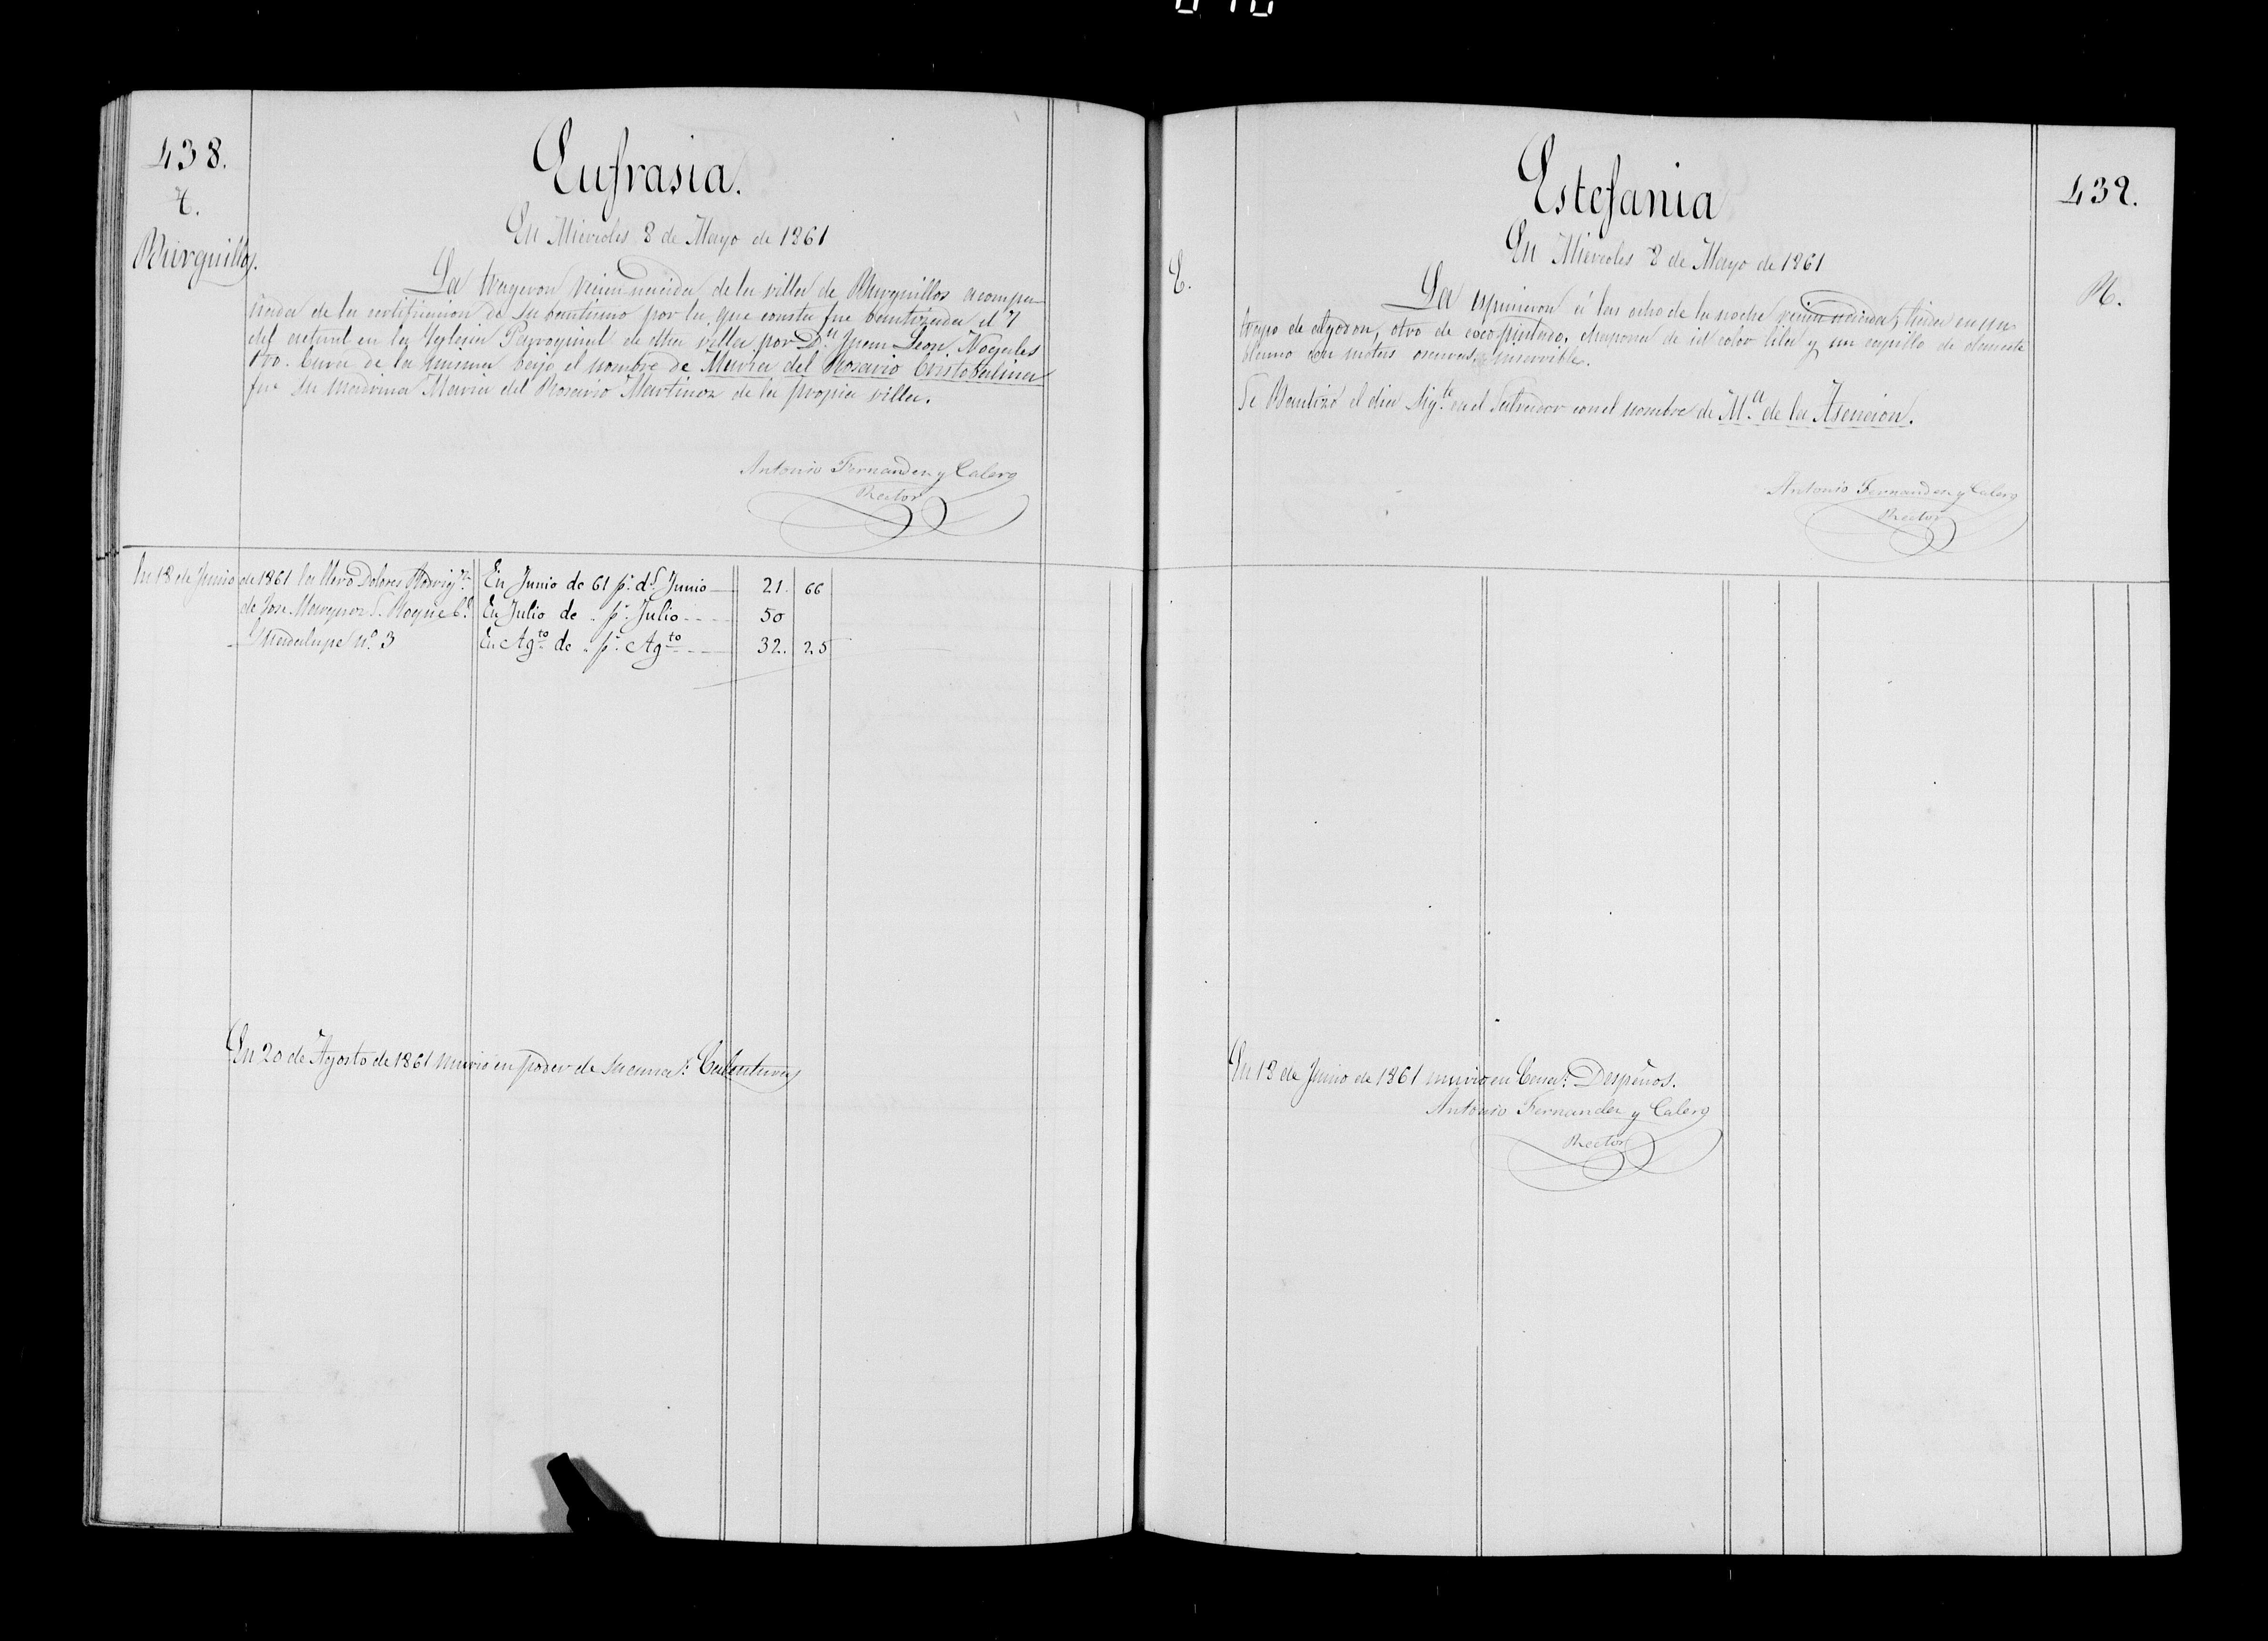 438.
Burguillos.
Eufrasia.
En Miercoles 8 de Mayo de 1861
La trageron recien nacida de la villa de Burguillos acompa-
ñada de la certificacion de su bautismo por la que consta fue bautizada el 7
del actual en la Yglesia Parroquial de dha villa por D.n Juan Leon Nogales
Pro. Cura de la misma bajo el nombre de Maria del Rosario Cristobalina
fue su madrina Maria del Rosario Martinez de la propia villa.
Antonio Fernandez y Calero
Rector
En 18 de Junio de 1861 la llevó Dolores Rodrig.z
de Jose Marquez S. Roque C.e
Guadalupe n.o 3
En Junio de 61 p.r d.s Junio 21. 66
En Julio de " p.r Julio 50
En Ag.to de " p.r Ag.to 32. 25
En 20 de Agosto de 1861 murió en poder de su ama: Calenturas
Estefania
432.
E.
R.
En Miercoles 8 de Mayo de 1861
La espusieron á las ocho de la noche recien nacida, liada en un
trapo de algodon, otro de coco pintado, chapona de id color lila y un capillo de
blanco con motas oscuras inservible.
Se Bautizó el dia sig.te en el Salvador con el nombre de M.a de la Asencion.
Antonio Fernandez y Calero
Rector
En 13 de Junio de 1861 murió en Casa: Despeños.
Antonio Fernandez y Calero
Rector